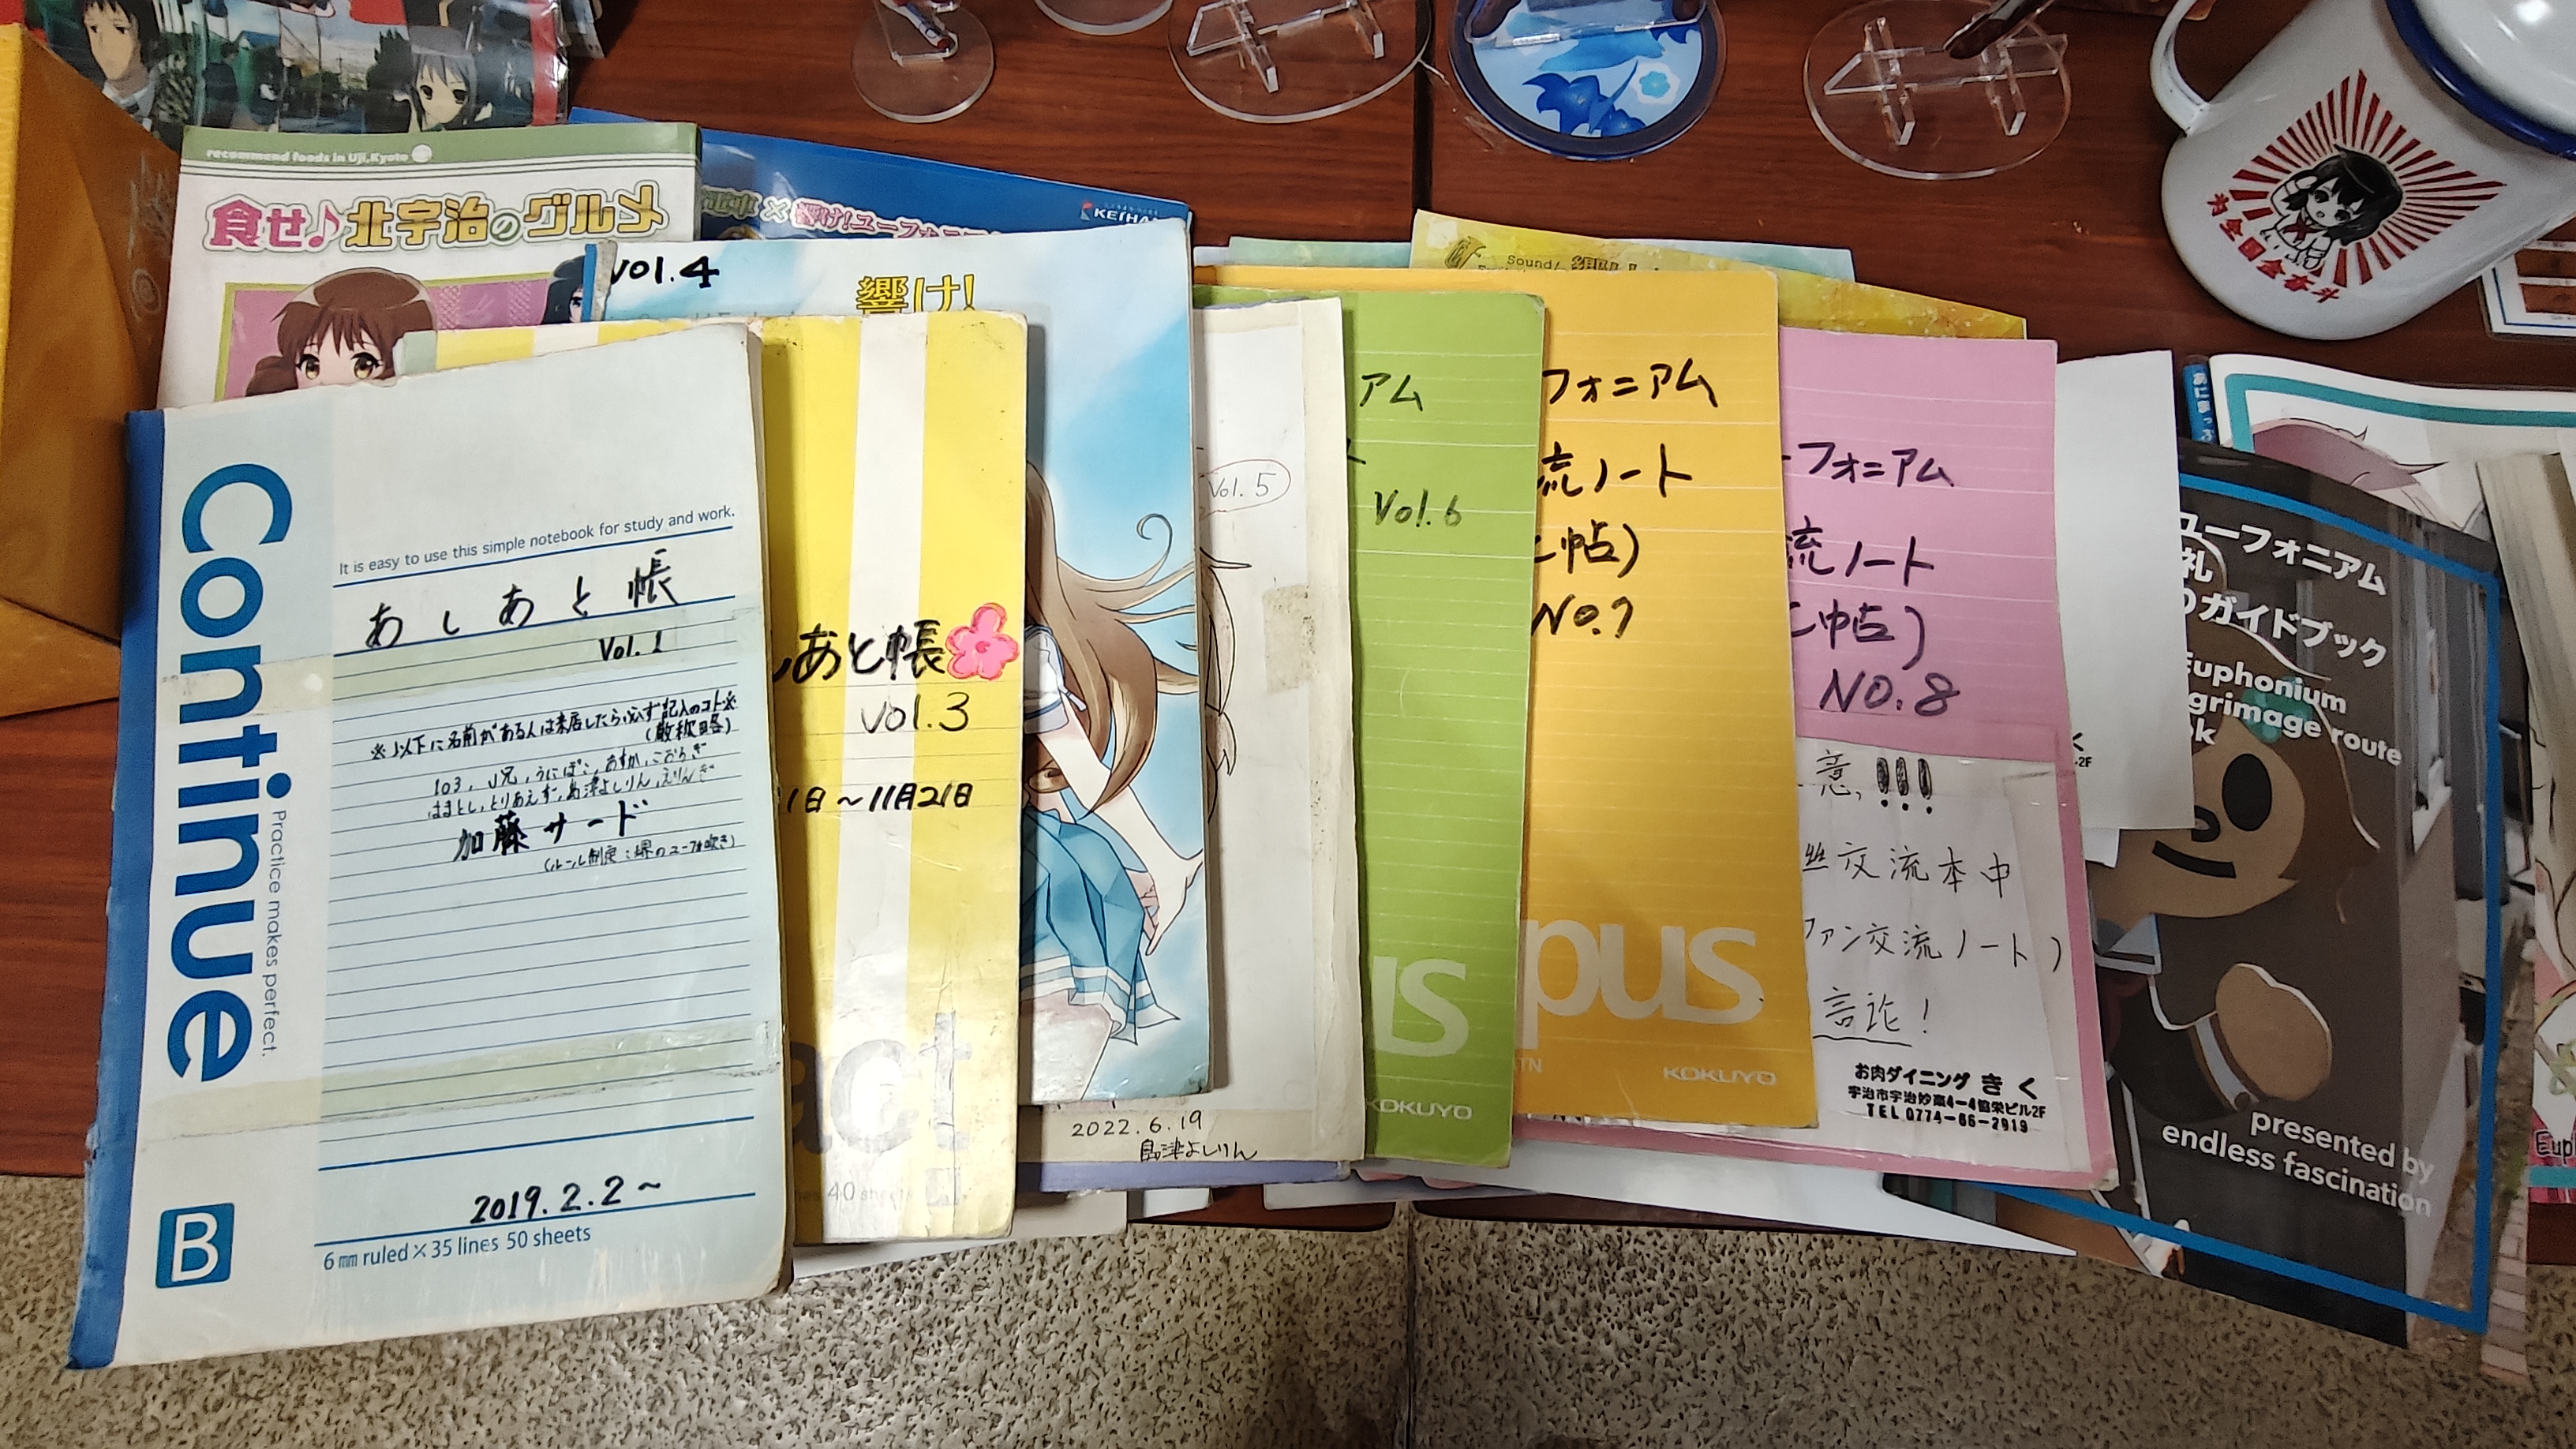 recommend foods in Uji,Kyoto
食せ♪北宇治のグルメ
KEIHA
響け!ユーフォ
Vol.4
響け!
Sound!
為全国金奋斗
Continue
Practice makes perfect.
It is easy to use this simple notebook for study and work.
あしあと帳
Vol.1
※以下に名前がある人は来店したら必ず記入のコト※
(敬称略)
103, J兄, うにぽこ, あすか, こおろぎ
はまとし, とりあえず, 島津よしりん, えりんぎ
加藤サード
(ルール制定:堺のユーフォ吹き)
2019.2.2〜
6mm ruled×35 lines 50 sheets
B
あと帳
Vol.3
1日〜11月21日
act
40 sheet
Vol.5
2022.6.19
島津よしりん
アム
Vol.6
us
KOKUYO
フォニアム
流ノート
帖)
NO.7
pus
KOKUYO
ーフォニアム
流ノート
帖)
NO.8
意!!!
丝交流本中
ファン交流ノート)
言论!
お肉ダイニング きく
宇治市宇治妙楽4-4協栄ビル2F
TEL 0774-66-2919
2F
ユーフォニアム
礼
ガイドブック
Euphonium
grimage route
k
presented by
endless fascination
Eup